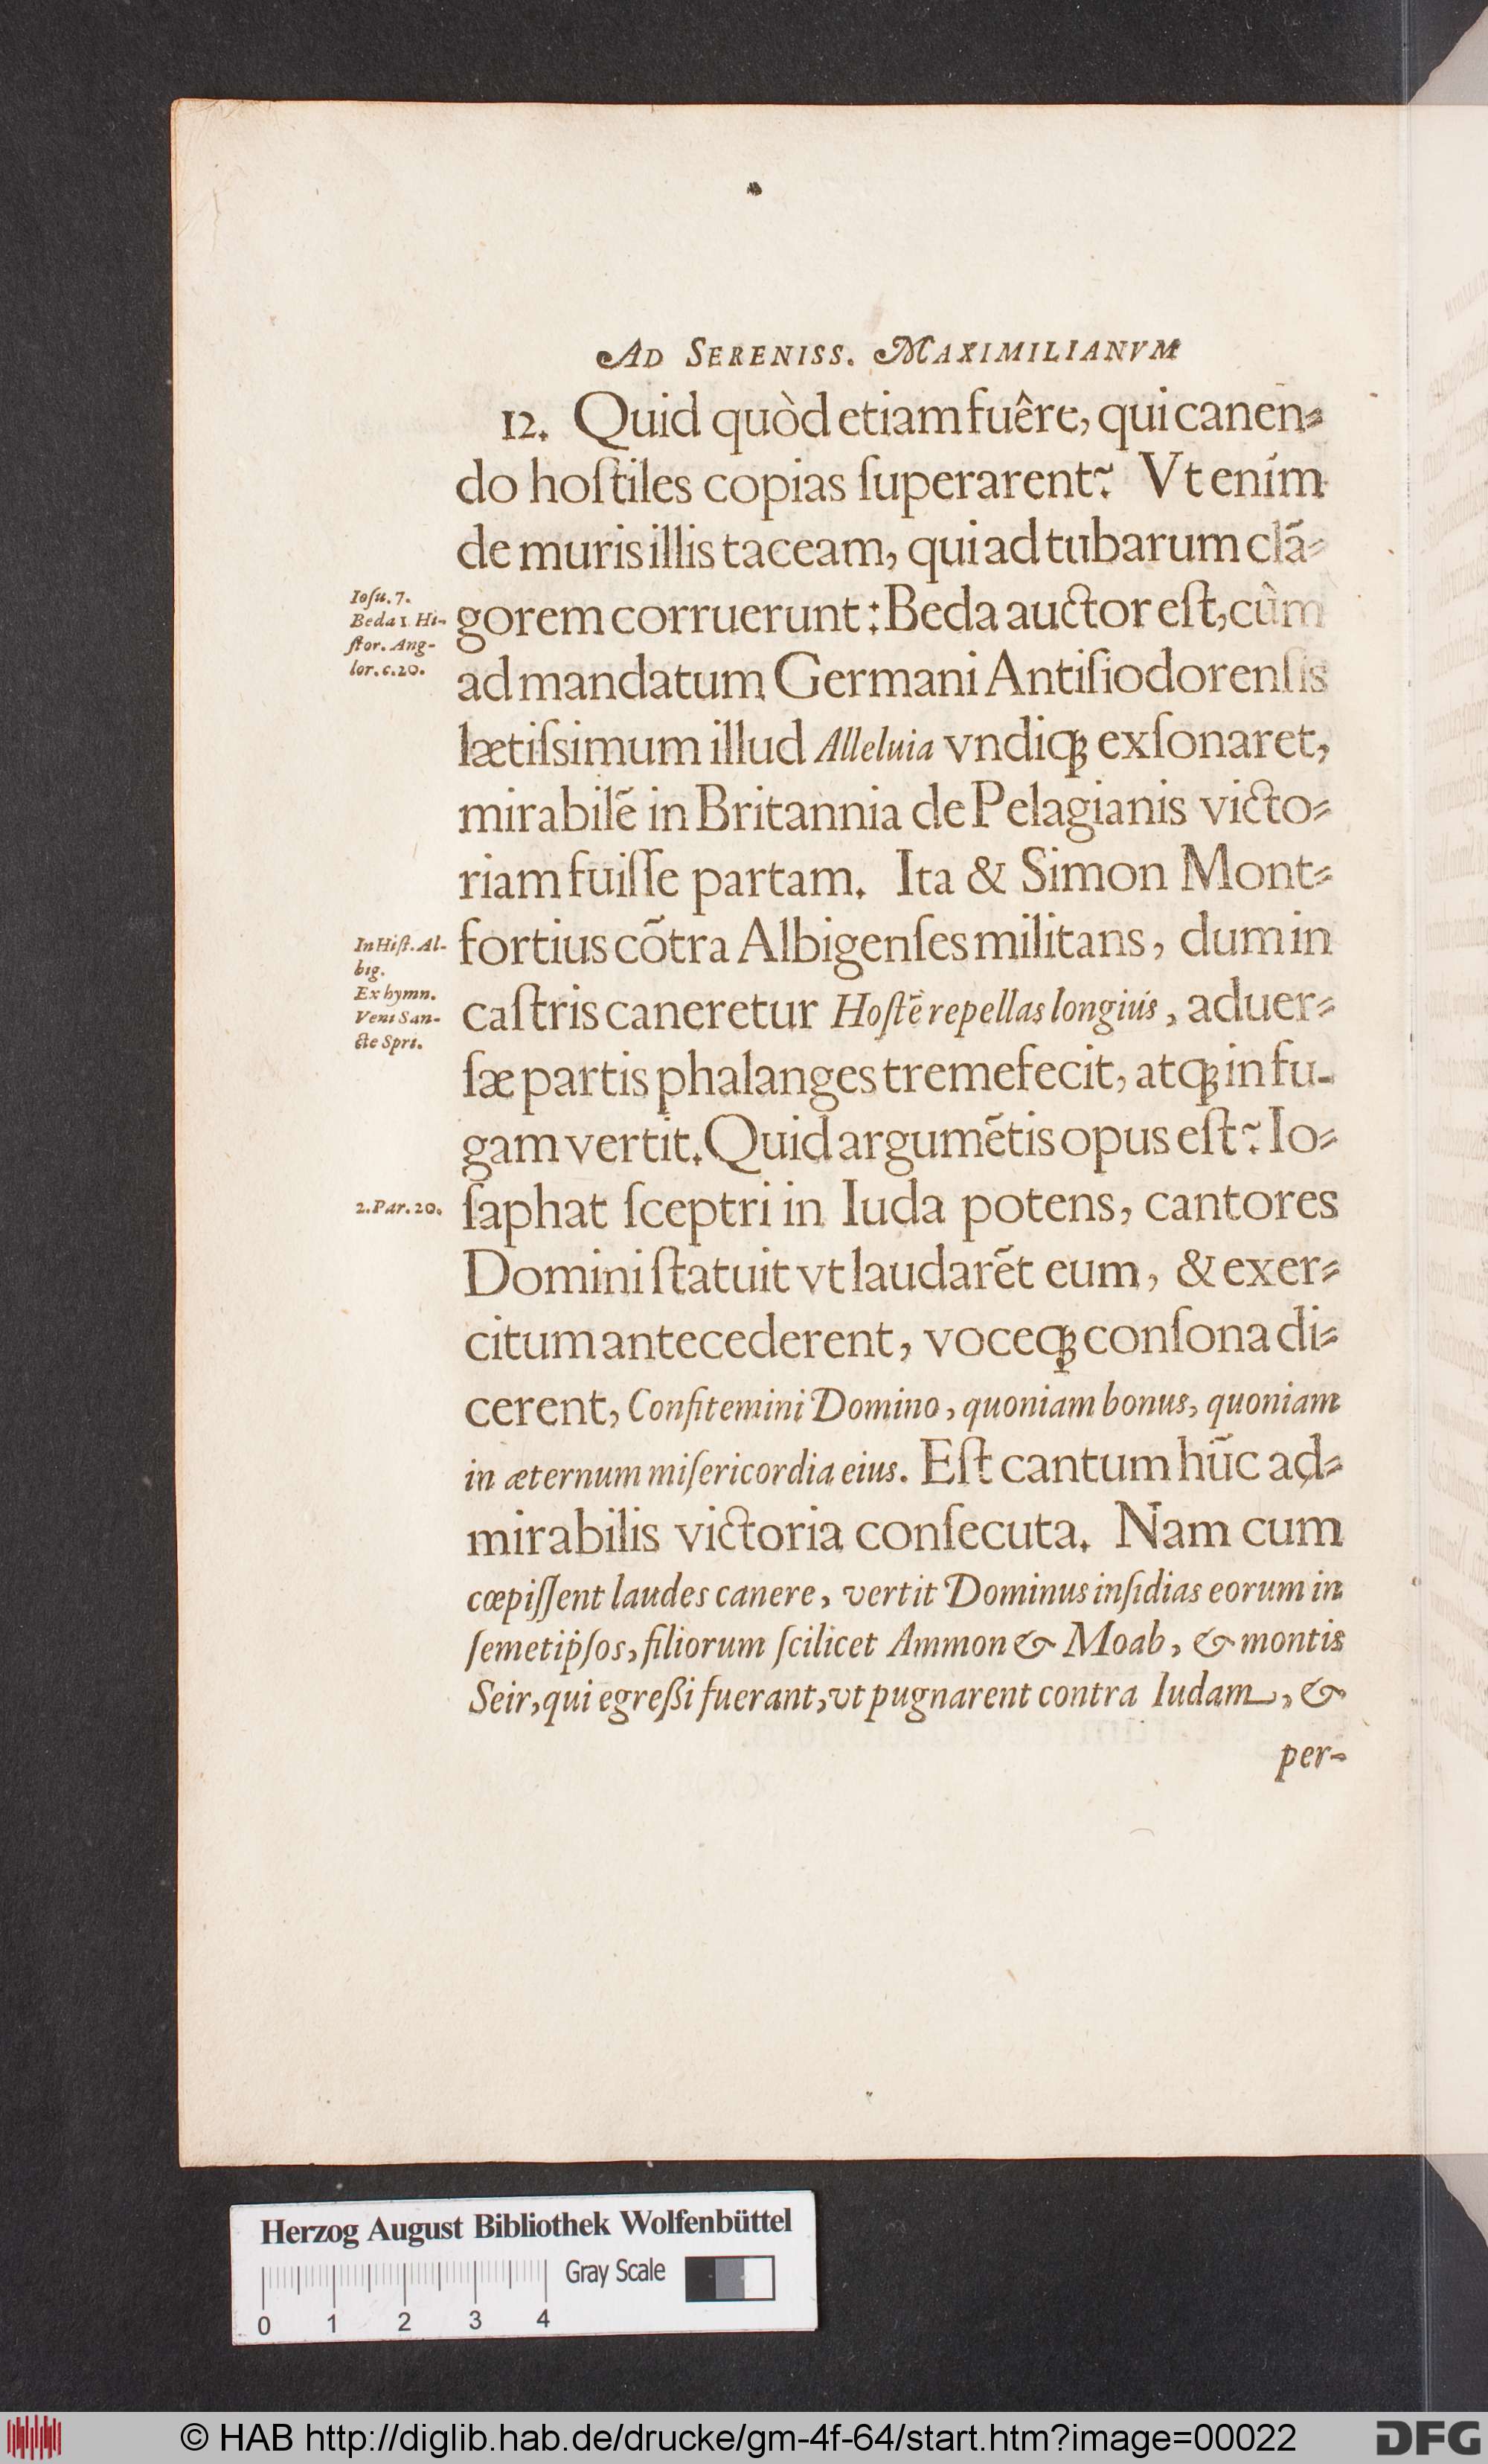 AD SERENISS. MAXIMILIANVM
12. Quid quòd etiam fuêre, qui canen⸗
do hoſtiles copias ſuperarent? Vt enim
de muris illis taceam, qui ad tubarum clā⸗
Ioſu. 7.
Beda 1. Hi-
ſtor. Ang-
lor. c. 20.
gorem corruerunt: Beda auctor eſt, cùm
ad mandatum Germani Antiſiodorenſis
lætiſsimum illud Alleluia vndiqꝫ exſonaret,
mirabilē in Britannia de Pelagianis victo⸗
riam fuiſſe partam. Ita & Simon Mont⸗
In Hiſt. Al-
big.
Ex hymn.
Veni San-
cte Spri.
fortius cōtra Albigenſes militans, dum in
caſtris caneretur Hoſtē repellas longiùs, aduer⸗
ſæ partis phalanges tremefecit, atqꝫ in fu-
gam vertit. Quid argumētis opus eſt? Io⸗
2. Par. 20.
ſaphat ſceptri in Iuda potens, cantores
Domini ſtatuit vt laudarēt eum, & exer⸗
citum antecederent, voceqꝫ conſona di⸗
cerent, Confitemini Domino, quoniam bonus, quoniam
in æternum miſericordia eius. Eſt cantum hūc ad⸗
mirabilis victoria conſecuta. Nam cum
cœpiſſent laudes canere, vertit Dominus inſidias eorum in
ſemetipſos, filiorum ſcilicet Ammon & Moab, & montis
Seir, qui egreßi fuerant, vt pugnarent contra Iudam, &
per-
Herzog August Bibliothek Wolfenbüttel
Gray Scale
0 1 2 3 4
© HAB http://diglib.hab.de/drucke/gm-4f-64/start.htm?image=00022
DFG